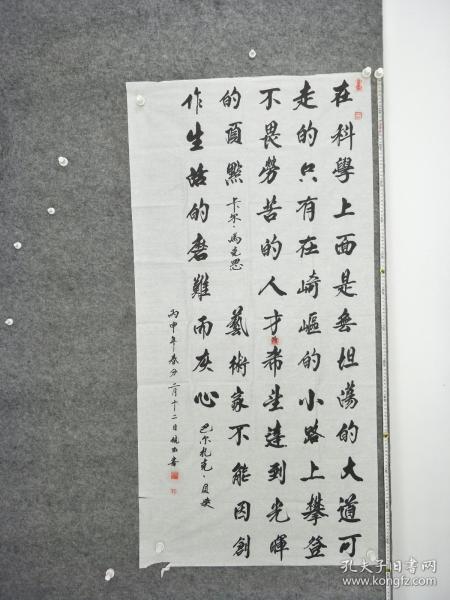 在科學上面是無坦蕩的大道可
走的只有在崎嶇的小路上攀登
不畏勞苦的人才希望達到光暉
的頂點 卡尔·馬克思 藝術家不能因創
作生活的磨難而灰心 巴尔扎克·貝姨
丙申年春分二月十二日
孔夫子旧书网
www.kongfz.com